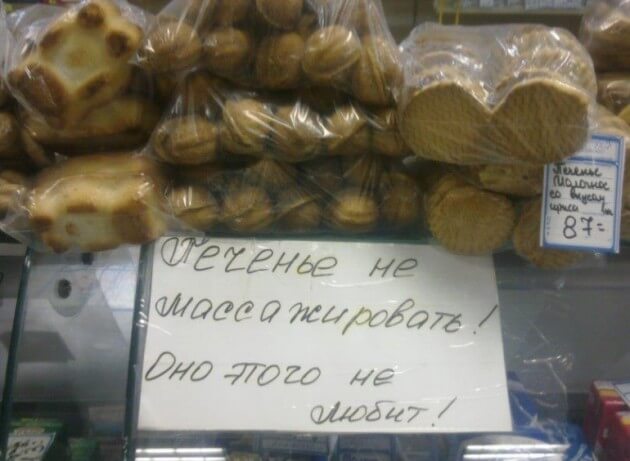 Печенье не
массажировать!
Оно этого не
любит!
Печенье
Молочное
со вкусом
87=